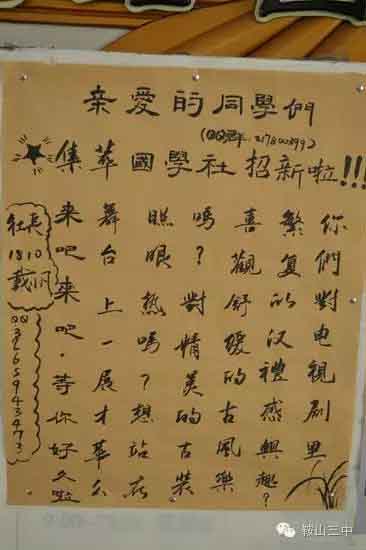 亲愛的同學們
(QQ群:
集萃國學社招新啦!!!
你們對电視剧里
繁复的汉禮感興趣?
喜觀舒缓的古風樂
嗎?對精美的古裝
瞧眼热嗎?想站在
舞台上一展才華么
来吧来吧·等你好久啦
社長
1810
戴帆
QQ
鞍山三中